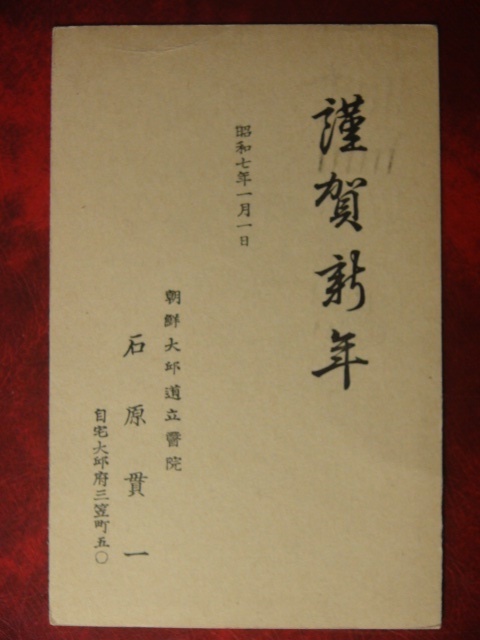 謹賀新年
昭和七年一月一日
朝鮮大邱道立醫院
石原貫一
自宅大邱府三笠町五〇